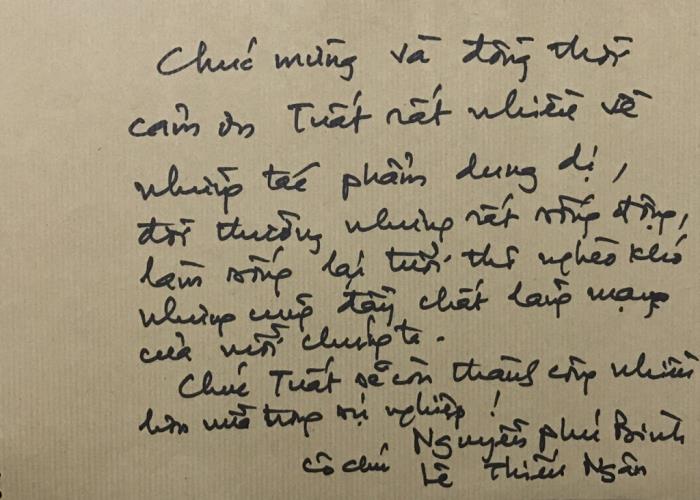 Chúc mừng và đồng thời
cảm ơn Tuất rất nhiều về
những tác phẩm dung dị,
đời thường nhưng rất sống động,
làm sống lại tuổi thơ nghèo khó
nhưng cũng đầy chất lãng mạn
của mỗi chúng ta.
Chúc Tuất sẽ còn thành công nhiều
hơn nữa trong sự nghiệp!
Nguyễn Phú Bình
cô chú Lê Thiếu Ngân